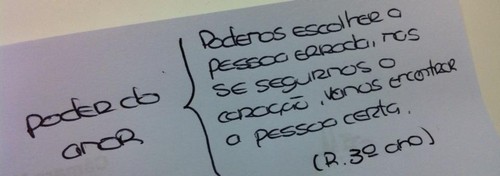 poder do
amor
Podemos escolher a
pessoa errada, mas
se seguirmos o
coração, vamos encontrar
a pessoa certa.
(R. 3º ano)